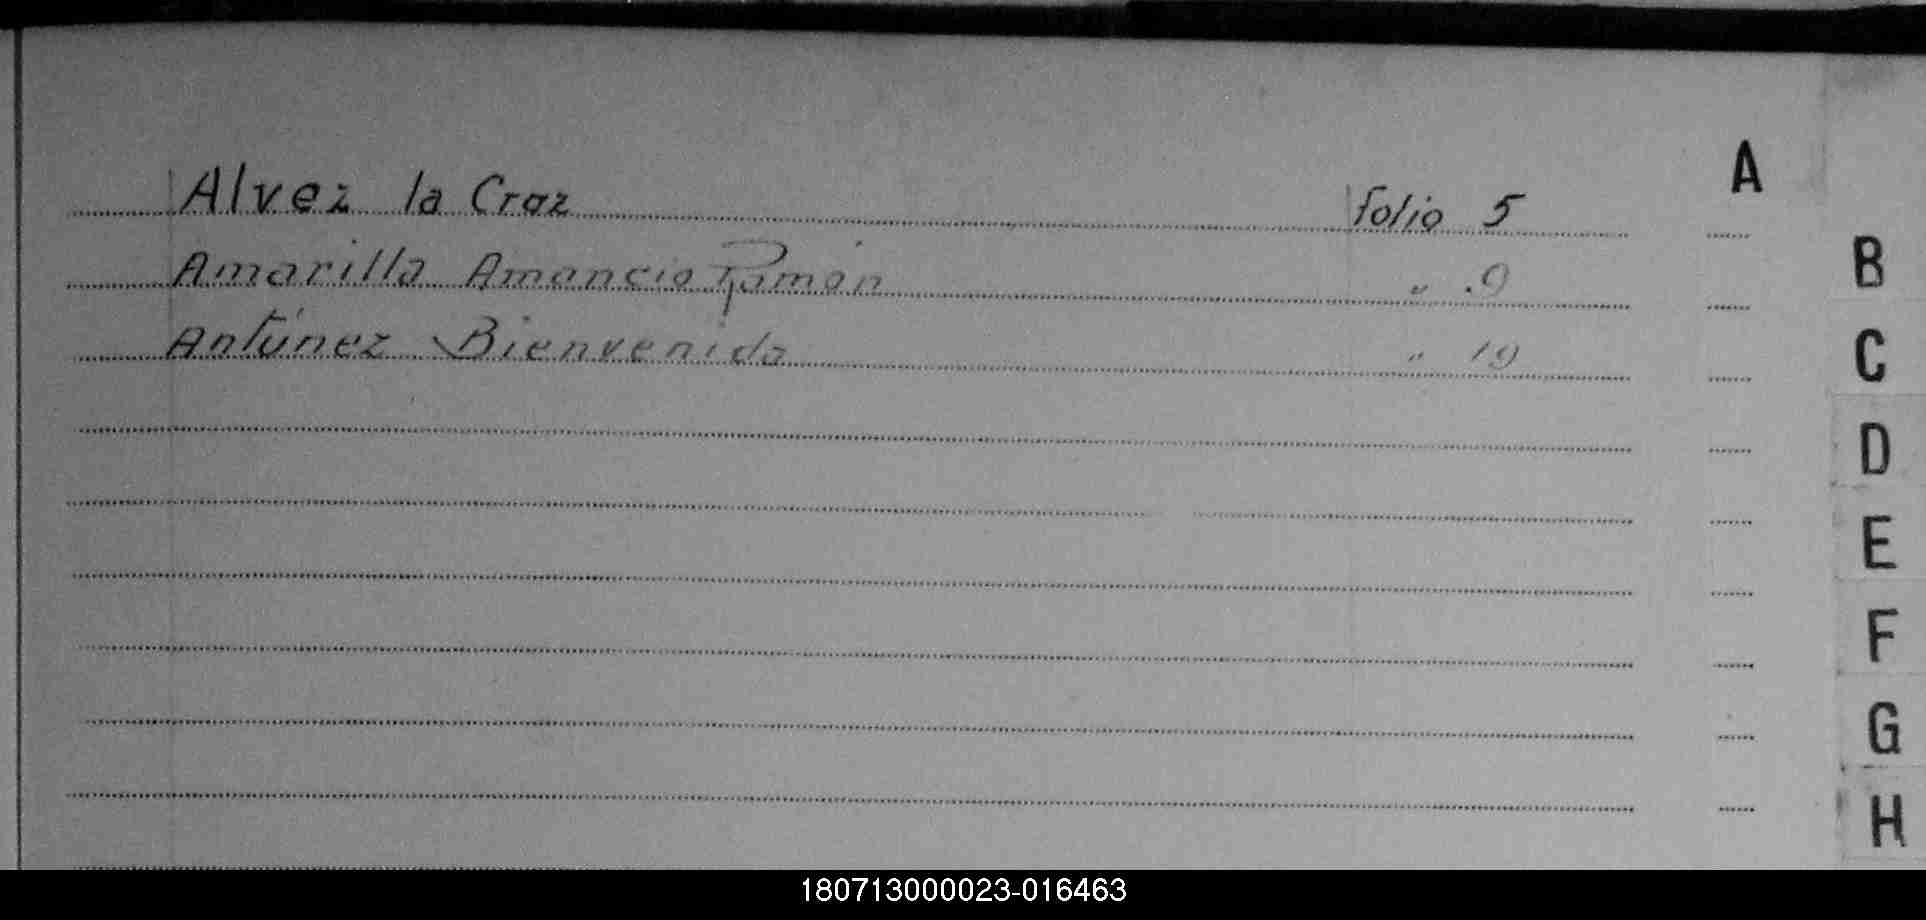 A
Alvez la Craz folio 5
Amarilla Amancio Ramón " 9
Antúnez Bienvenida " 19
B
C
D
E
F
G
H
180713000023-016463